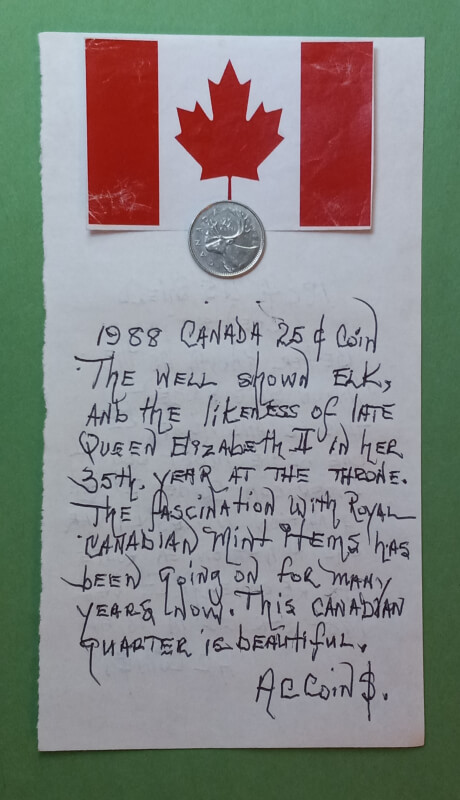 CANADA
1988 CANADA 25 ¢ Coin
The WELL shown ELK,
AND the likeness of late
Queen Elizabeth II in her
35th. YEAR AT THE THRONE.
The fascination with Royal
CANADIAN Mint items has
been going on for many
years now. This CANADIAN
quarter is beautiful.
AC Coin$.